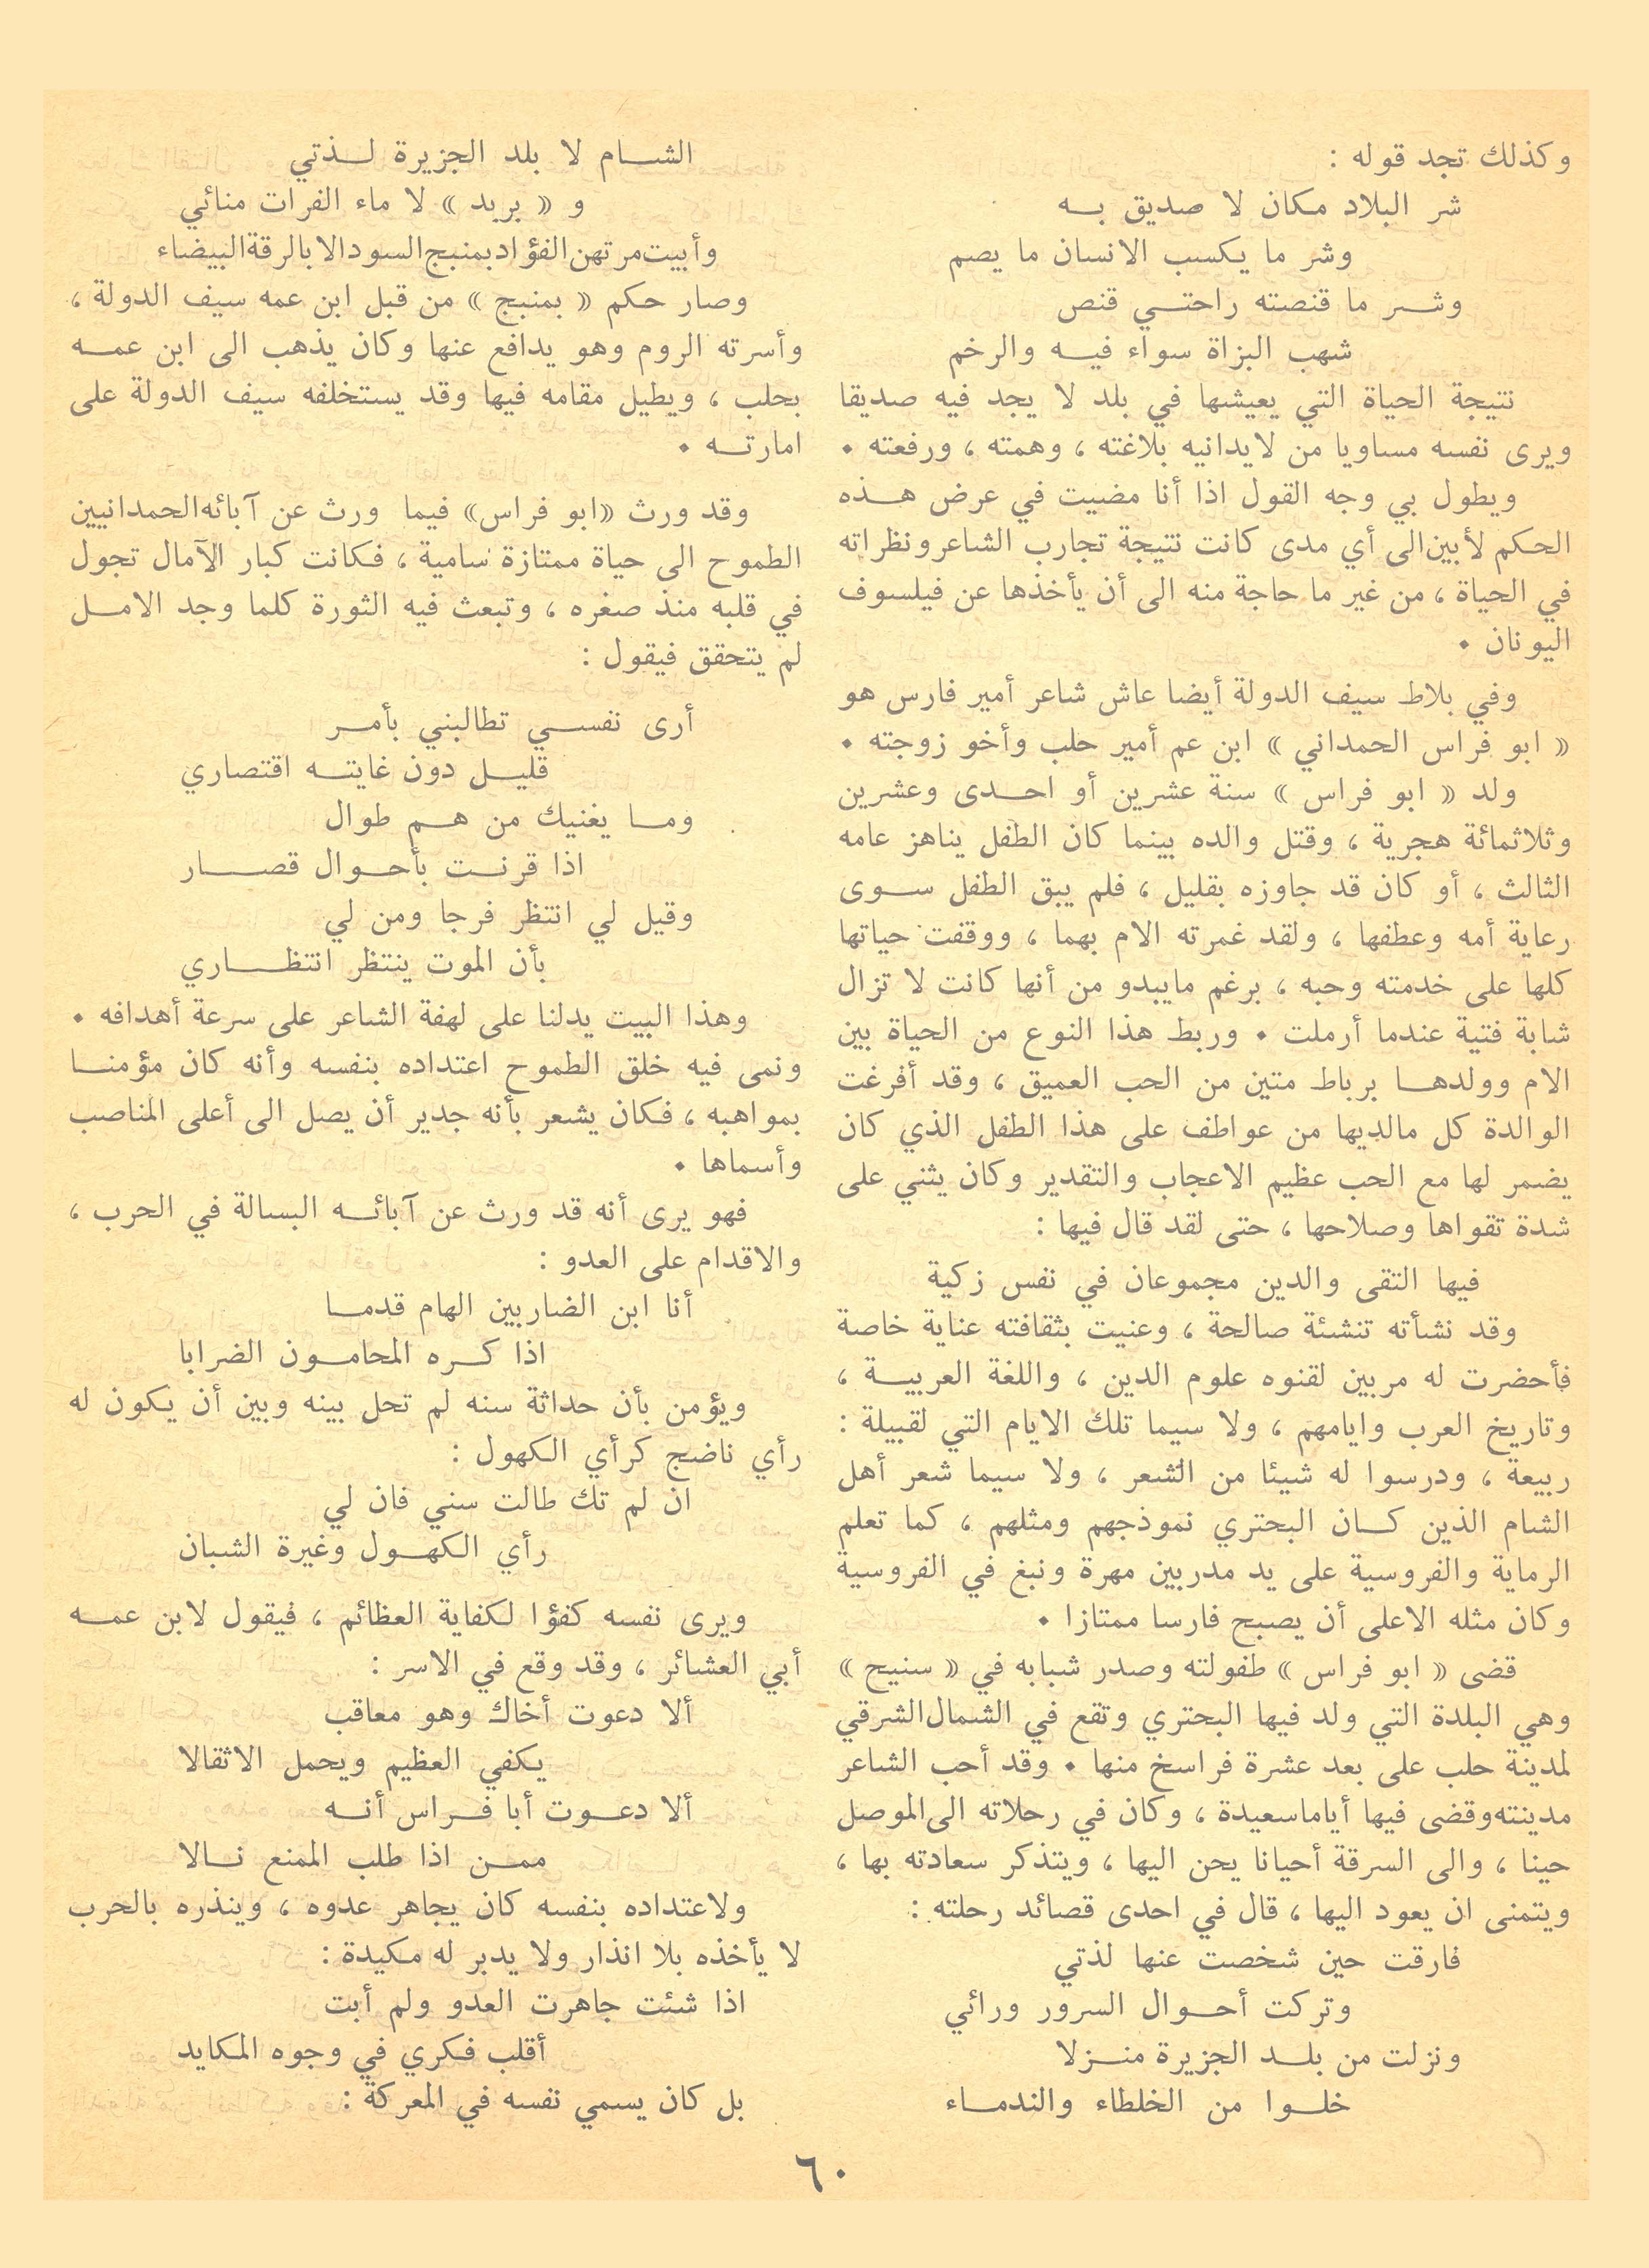 وكذلك تجد قوله :
شر البلاد مكان لا صديق بــه
وشر ما يكسب الانسان ما يصم
وشــر ما قنصته راحتــي قنص
شهب البزاة سواء فيــه والرخم
نتيجة الحياة التي يعيشها في بلد لا يجد فيه صديقا
ويرى نفسه مساويا من لايدانيه بلاغته ، وهمته ، ورفعته ٠
ويطول بي وجه القول اذا أنا مضيت في عرض هــذه
الحكم لأبين الى أي مدى كانت نتيجة تجارب الشاعر ونظراته
في الحياة ، من غير ما حاجة منه الى أن يأخذها عن فيلسوف
اليونان ٠
وفي بلاط سيف الدولة أيضا عاش شاعر أمير فارس هو
« ابو فراس الحمداني » ابن عم أمير حلب وأخو زوجته ٠
ولد « ابو فراس » سنة عشرين أو احــدى وعشرين
وثلاثمائة هجرية ، وقتل والده بينما كان الطفل يناهز عامه
الثالث ، أو كان قد جاوزه بقليل ، فلم يبق الطفل ســوى
رعاية أمه وعطفها ، ولقد غمرته الام بهما ، ووقفت حياتها
كلها على خدمته وحبه ، برغم مايبدو من أنها كانت لا تزال
شابة فتية عندما أرملت ٠ وربط هذا النوع من الحياة بين
الام وولدهــا برباط متين من الحب العميق ، وقد أفرغت
الوالدة كل مالديها من عواطف على هذا الطفل الذي كان
يضمر لها مع الحب عظيم الاعجاب والتقدير وكان يثني على
شدة تقواها وصلاحها ، حتى لقد قال فيها :
فيها التقى والدين مجموعان في نفس زكية
وقد نشأته تنشئة صالحة ، وعنيت بثقافته عناية خاصة
فأحضرت له مربين لقنوه علوم الدين ، واللغة العربيــة ،
وتاريخ العرب وايامهم ، ولا سيما تلك الايام التي لقبيلة :
ربيعة ، ودرسوا له شيئا من الشعر ، ولا سيما شعر أهل
الشام الذين كــان البحتري نموذجهم ومثلهم ، كما تعلم
الرماية والفروسية على يد مدربين مهرة ونبغ في الفروسية
وكان مثله الاعلى أن يصبح فارسا ممتازا ٠
قضى « ابو فراس » طفولته وصدر شبابه في « سنيح »
وهي البلدة التي ولد فيها البحتري وتقع في الشمال الشرقي
لمدينة حلب على بعد عشرة فراسخ منها ٠ وقد أحب الشاعر
مدينته وقضى فيها أياما سعيدة ، وكان في رحلاته الى الموصل
حينا ، والى السرقة أحيانا يحن اليها ، ويتذكر سعادته بها ،
ويتمنى ان يعود اليها ، قال في احدى قصائد رحلته :
فارقت حين شخصت عنها لذتي
وتركت أحــوال السرور ورائي
ونزلت من بلــد الجزيرة منــزلا
خلــوا من الخلطاء والندمــاء
الشــام لا بلد الجزيرة لــذتي
و « بربد » لا ماء الفرات منائي
وأبيت مرتهن الفؤاد بمنبج السود الا بالرقة البيضاء
وصار حكم « بمنبج » من قبل ابن عمه سيف الدولة ،
وأسرته الروم وهو يدافع عنها وكان يذهب الى ابن عمــه
بحلب ، ويطيل مقامه فيها وقد يستخلفه سيف الدولة على
امارتــه ٠
وقد ورث «ابو فراس» فيما ورث عن آبائه الحمدانيين
الطموح الى حياة ممتازة سامية ، فكانت كبار الآمال تجول
في قلبه منذ صغره ، وتبعث فيه الثورة كلما وجد الامــل
لم يتحقق فيقول :
أرى نفســي تطالبني بأمــر
قليــل دون غايتــه اقتصاري
ومــا يغنيك من هــم طوال
اذا قرنــت بأحــوال قصــار
وقيل لي انتظر فرجا ومن لي
بأن الموت ينتظر انتظــاري
وهذا البيت يدلنا على لهفة الشاعر على سرعة أهدافه ٠
ونمى فيه خلق الطموح اعتداده بنفسه وأنه كان مؤمنــا
بمواهبه ، فكان يشعر بأنه جدير أن يصل الى أعلى المناصب
وأسماها ٠
فهو يرى أنه قد ورث عن آبائــه البسالة في الحرب ،
والاقدام على العدو :
أنا ابن الضاربين الهام قدمــا
اذا كــره المحامــون الضرابا
ويؤمن بأن حداثة سنه لم تحل بينه وبين أن يكون له
رأي ناضج كرأي الكهول :
ان لم تك طالت سني فان لي
رأي الكهــول وغيرة الشبان
ويرى نفسه كفؤا لكفاية العظائم ، فيقول لابن عمــه
أبي العشائر ، وقد وقع في الاسر :
ألا دعوت أخاك وهو معاقب
يكفي العظيم ويحمل الاثقالا
ألا دعــوت أبا فــراس أنــه
ممــن اذا طلب الممنع نــالا
ولاعتداده بنفسه كان يجاهر عدوه ، وينذره بالحرب
لا يأخذه بلا انذار ولا يدبر له مكيدة :
اذا شئت جاهرت العدو ولم أبت
أقلب فكري في وجوه المكايد
بل كان يسمي نفسه في المعركة :
٦٠